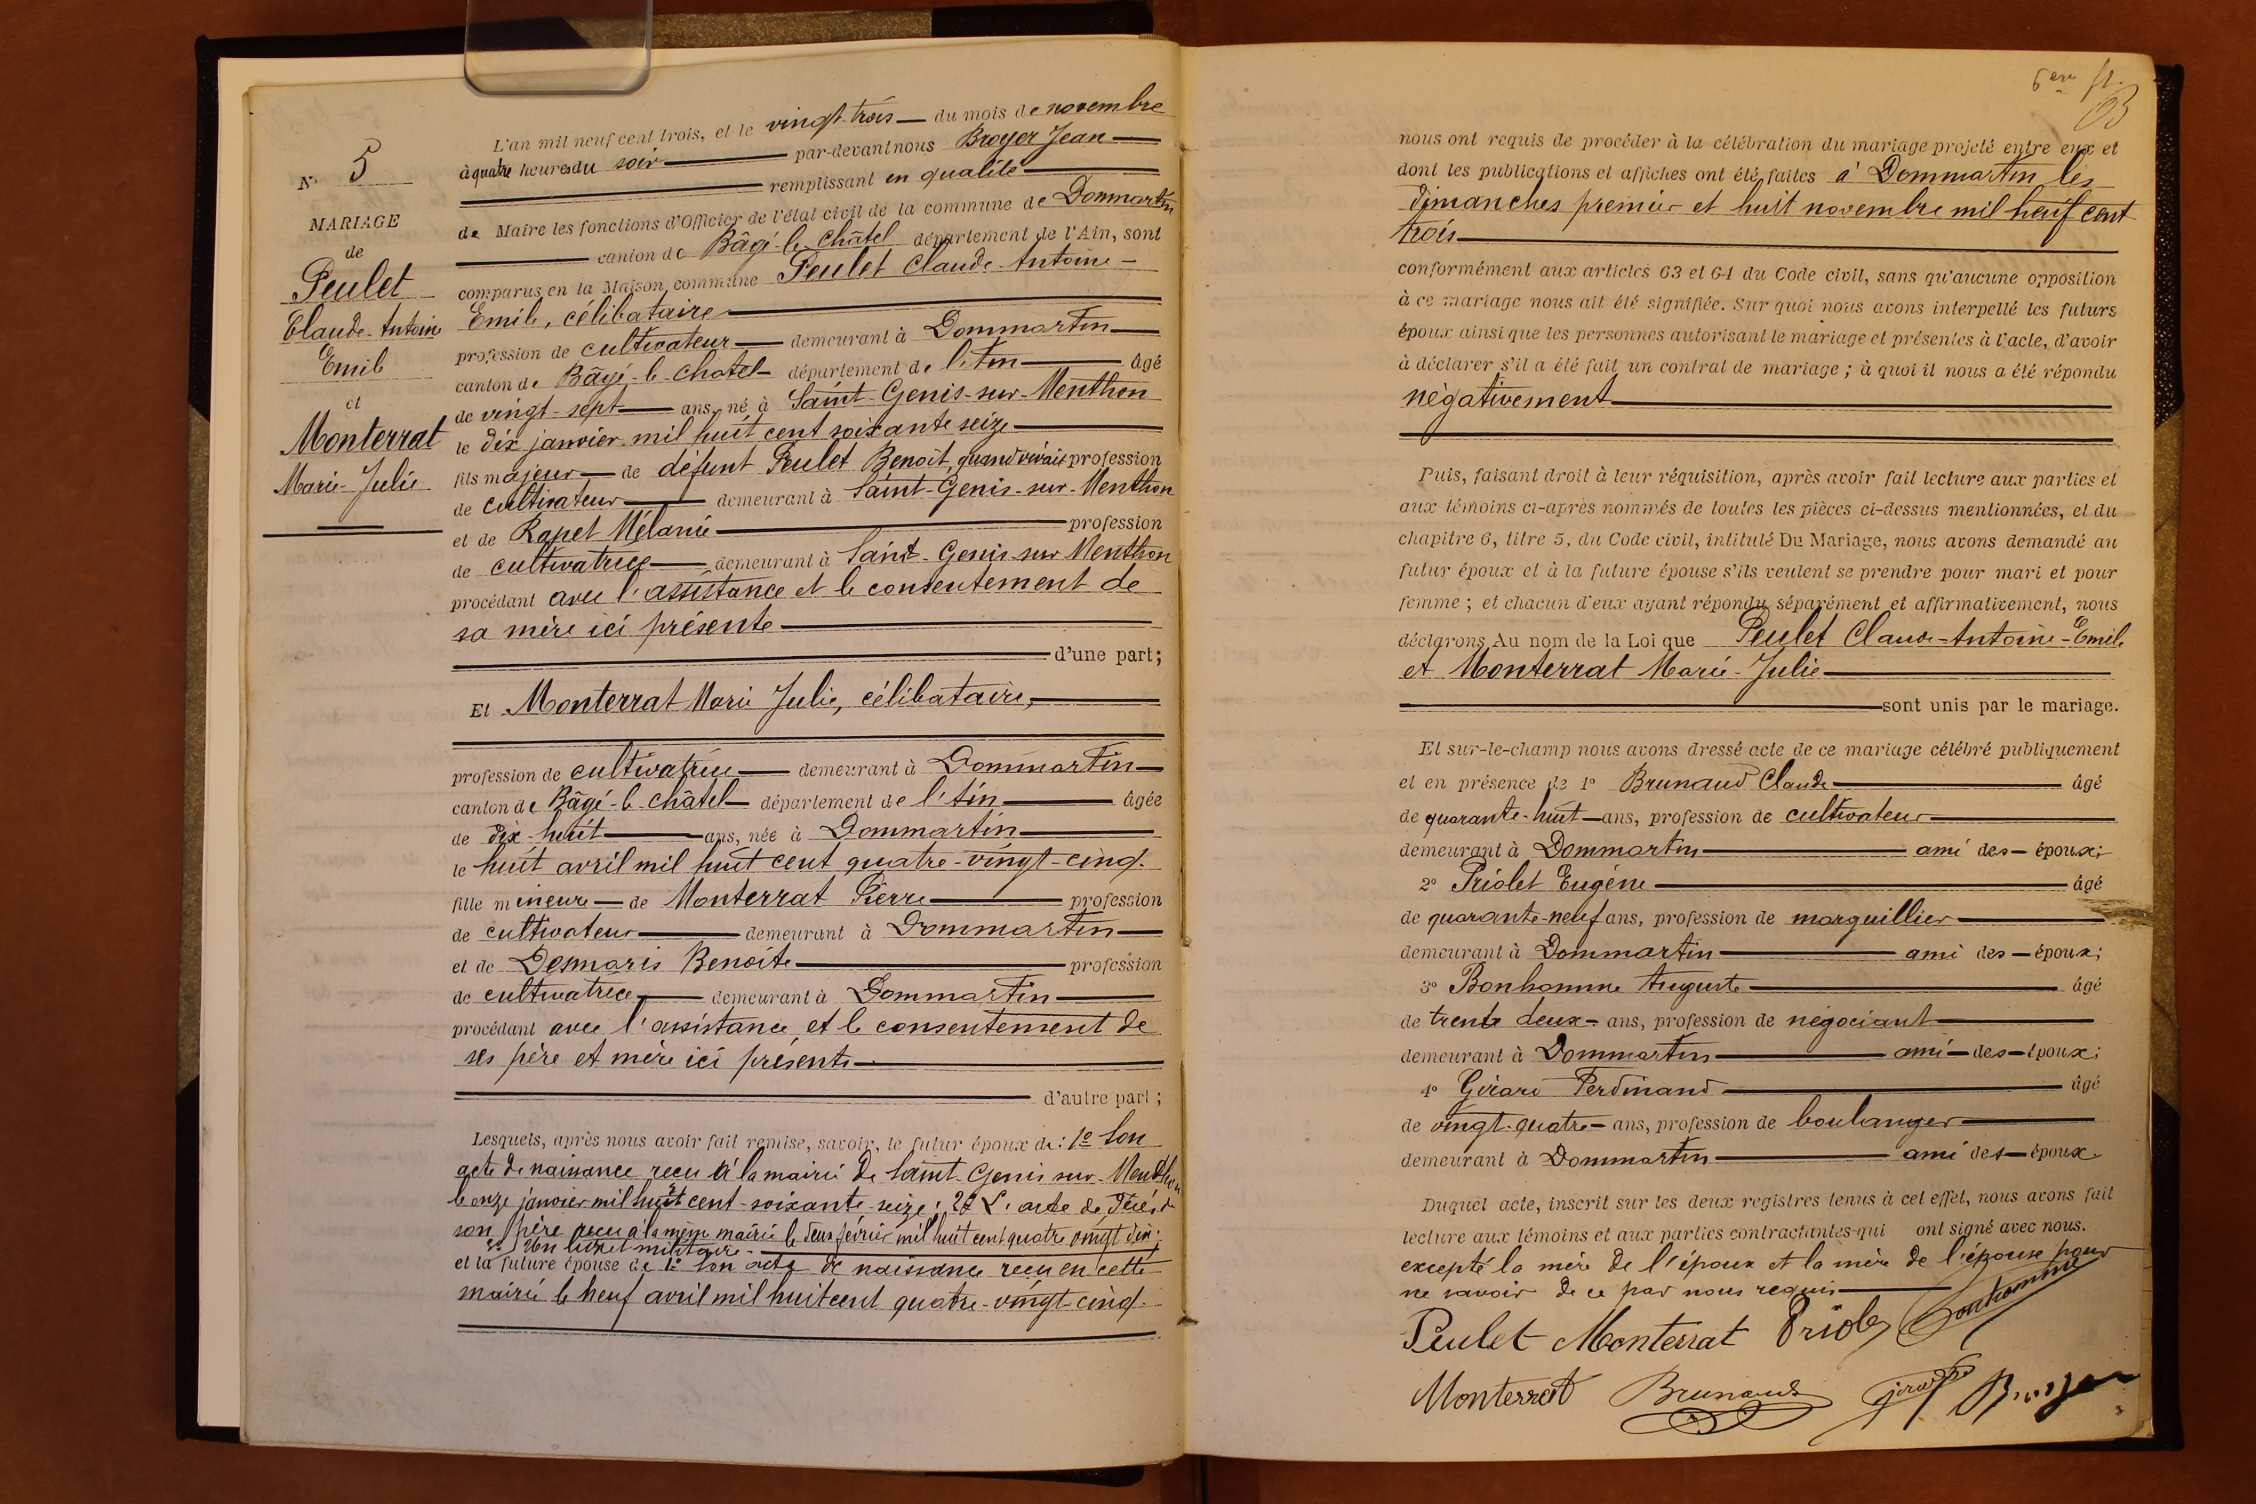 N° 5
MARIAGE
de
Peulet
Claude-Antoine
Emile
et
Monterrat
Marie-Julie
L'an mil neuf cent trois, et le vingt-trois du mois de novembre
à quatre heures du soir par-devant nous Broyer Jean
remplissant en qualité
de Maire les fonctions d'Officier de l'état civil de la commune de Dommartin
canton de Bâgé-le-Châtel département de l'Ain, sont
comparus en la Maison commune Peulet Claude-Antoine-
Emile, célibataire
profession de cultivateur demeurant à Dommartin
canton de Bâgé-le-Chatel département de l'Ain âgé
de vingt-sept ans, né à Saint-Genis-sur-Menthon
le dix janvier mil huit cent soixante seize
fils majeur de défunt Peulet Benoît, quand vivait profession
de cultivateur demeurant à Saint-Genis-sur-Menthon
et de Rapet Mélanie profession
de cultivatrice demeurant à Saint-Genis-sur Menthon
procédant avec l'assistance et le consentement de
sa mère ici présente
d'une part;
Et Monterrat Marie Julie, célibataire,
profession de cultivatrice demeurant à Dommartin
canton de Bâgé-le-Châtel département de l'Ain âgée
de dix-huit ans, née à Dommartin
le huit avril mil huit cent quatre-vingt-cinq.
fille mineure de Monterrat Pierre profession
de cultivateur demeurant à Dommartin
et de Desmaris Benoîte profession
de cultivatrice demeurant à Dommartin
procédant avec l'assistance et le consentement de
ses père et mère ici présents
d'autre part;
Lesquels, après nous avoir fait remise, savoir, le futur époux de: 1° Son
acte de naissance reçu à la mairie de Saint-Genis sur-Menthon
le onze janvier mil huit cent-soixante-seize; 2° L'acte de décès de
son père reçu à la même mairie le deux février mil huit cent quatre vingt dix;
3° Un livret militaire
et la future épouse de 1° Son acte de naissance reçu en cette
mairie le neuf avril mil huit cent quatre-vingt-cinq.
nous ont requis de procéder à la célébration du mariage projeté entre eux et
dont les publications et affiches ont été faites à Dommartin les
dimanches premier et huit novembre mil neuf cent
trois
conformément aux articles 63 et 64 du Code civil, sans qu'aucune opposition
à ce mariage nous ait été signifiée. Sur quoi nous avons interpellé les futurs
époux ainsi que les personnes autorisant le mariage et présentes à l'acte, d'avoir
à déclarer s'il a été fait un contrat de mariage; à quoi il nous a été répondu
négativement
Puis, faisant droit à leur réquisition, après avoir fait lecture aux parties et
aux témoins ci-après nommés de toutes les pièces ci-dessus mentionnées, et du
chapitre 6, titre 5, du Code civil, intitulé Du Mariage, nous avons demandé au
futur époux et à la future épouse s'ils veulent se prendre pour mari et pour
femme; et chacun d'eux ayant répondu séparément et affirmativement, nous
déclarons Au nom de la Loi que Peulet Claude-Antoine-Emile
et Monterrat Marie-Julie
sont unis par le mariage.
Et sur-le-champ nous avons dressé acte de ce mariage célébré publiquement
et en présence de 1° Brunaud Claude âgé
de quarante-huit ans, profession de cultivateur
demeurant à Dommartin ami des époux;
2° Priolet Eugène âgé
de quarante-neuf ans, profession de marguillier
demeurant à Dommartin ami des époux;
3° Bonhomme Auguste âgé
de trente deux ans, profession de négociant
demeurant à Dommartin ami des époux;
4° Girard Ferdinand âgé
de vingt-quatre ans, profession de boulanger
demeurant à Dommartin ami des époux.
Duquel acte, inscrit sur les deux registres tenus à cet effet, nous avons fait
lecture aux témoins et aux parties contractantes qui ont signé avec nous.
excepté la mère de l'époux et la mère de l'épouse pour
ne savoir de ce par nous requis
Peulet Monterrat Priolet Bonhomme
Monterrat Brunaud Girard Broyer